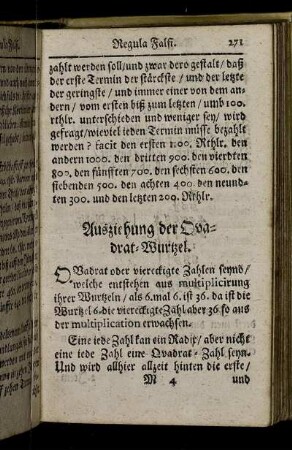 Regula Falsi. 271
zahlt werden soll/und zwar dero gestalt/ daß
der erste Termin der stärckste / und der letzte
der geringste / und immer einer von dem an-
dern / vom ersten biß zum letzten / umb 100.
rthlr. unterschieden und weniger sey / wird
gefragt/wieviel ieden Termin müsse bezahlt
werden ? facit den ersten 1100. Rthlr. den
andern 1000. den dritten 900. den vierdten
800. den fünfften 700. den sechsten 600. den
siebenden 500. den achten 400. den neund-
ten 300. und den letzten 200. Rthlr.
Ausziehung der Qva-
drat-Wurtzel.
QVadrat oder viereckigte Zahlen seynd/
welche entstehen aus multiplicirung
ihrer Wurtzeln / als 6. mal 6. ist 36. da ist die
Wurtzel 6. die viereckigte Zahl aber 36 so aus
der multiplication erwachsen.
Eine iede Zahl kan ein Radix/ aber nicht
eine iede Zahl eine Qvadrat-Zahl seyn.
Und wird allhier allzeit hinten die erste/
M 4 und